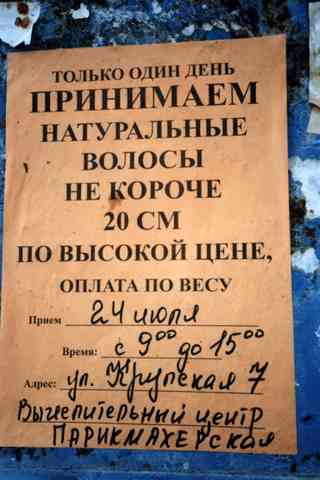 ТОЛЬКО ОДИН ДЕНЬ
ПРИНИМАЕМ
НАТУРАЛЬНЫЕ
ВОЛОСЫ
НЕ КОРОЧЕ
20 СМ
ПО ВЫСОКОЙ ЦЕНЕ,
ОПЛАТА ПО ВЕСУ
Прием 24 июля
Время: с 9⁰⁰ до 15⁰⁰
Адрес: ул. Крупская 7
Вычеслительный центр
ПАРИКМАХЕРСКАЯ